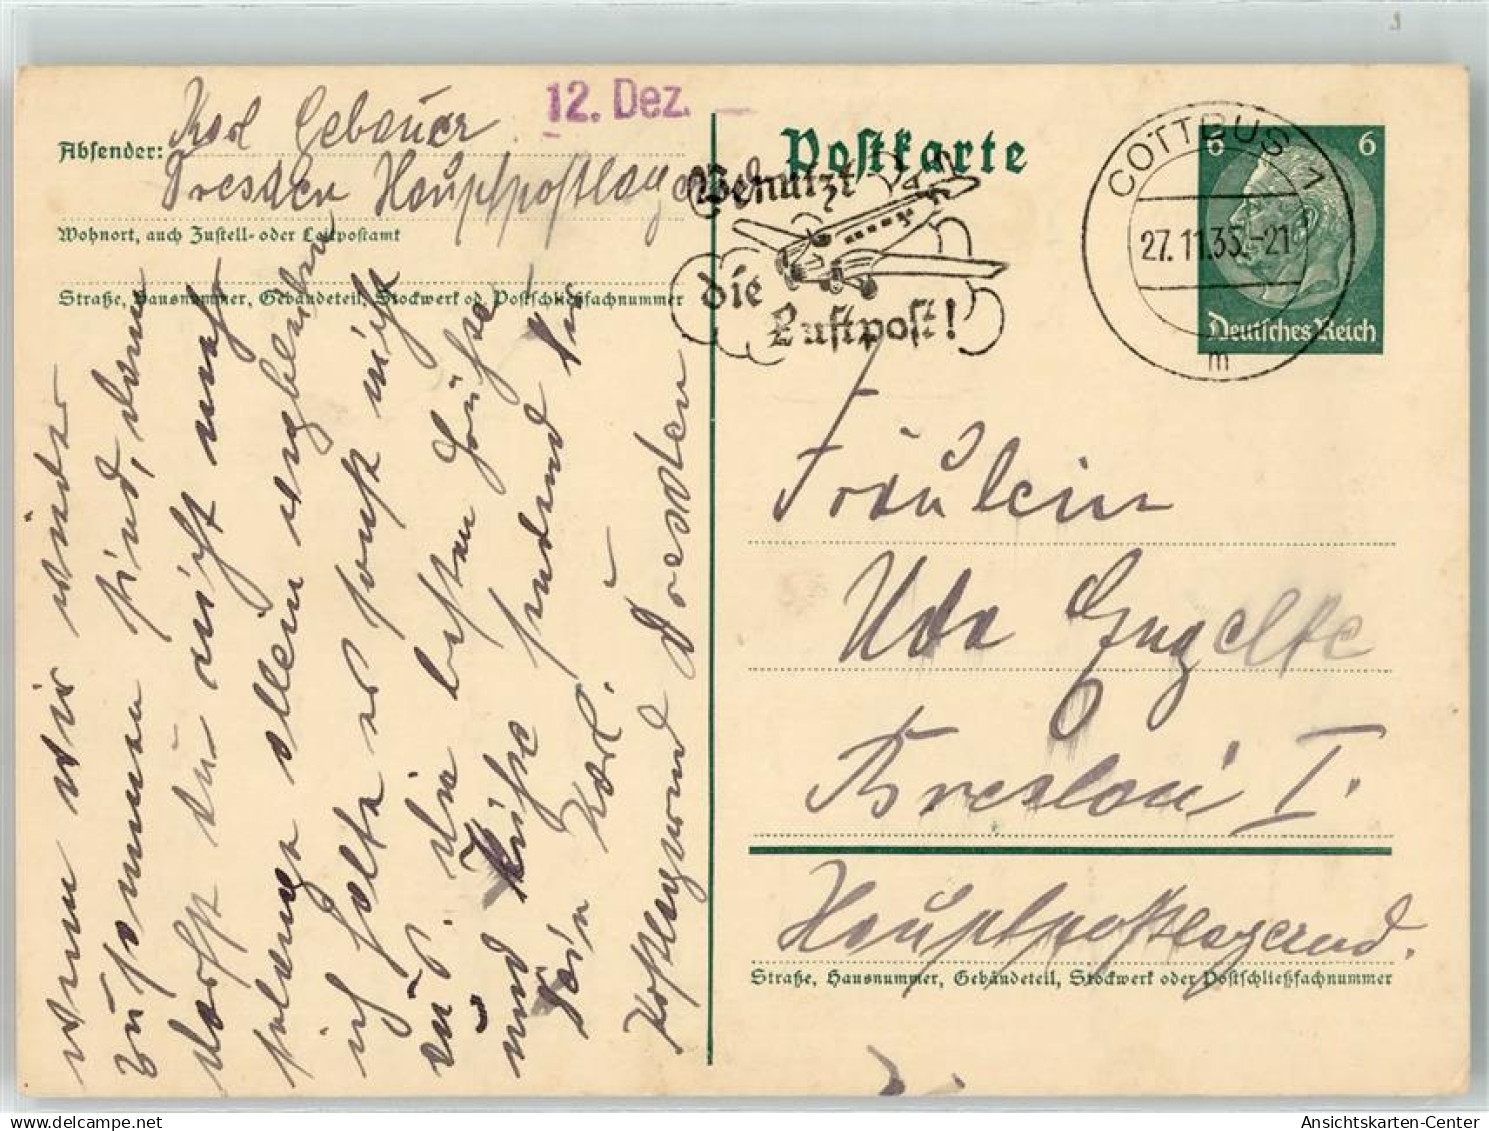 12. Dez.
Postkarte
Absender: Karl Gebauer
Dresden Hauptpostlagernd
Wohnort, auch Zustell- oder Leitpostamt
Straße, Hausnummer, Gebäudeteil, Stockwerk od. Postschließfachnummer
Benutzt
die
Luftpost!
COTTBUS 1
27.11.35.-21
m
6 6
Deutsches Reich
Fräulein
Uda
Breslau I.
Hauptpostlagernd.
Straße, Hausnummer, Gebäudeteil, Stockwerk oder Postschließfachnummer
wenn wir wieder
zusammen sind, denn
darfst du nicht mehr
solange allein
ich halte es sonst nicht
aus. die besten Grüße
und Küsse sendend Dir
Dein Karl.
Postlagernd Dresden
Ansichtskarten-Center